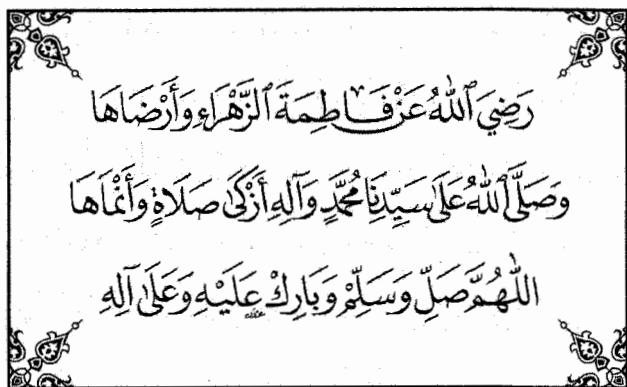 رَضِيَ ٱللهُ عَنْ فَاطِمَةَ ٱلزَّهْرَاءِ وَأَرْضَاهَا
وَصَلَّى ٱللهُ عَلَى سَيِّدِنَا مُحَمَّدٍ وَآلِهِ أَزْكَى صَلَاةٍ وَأَنْمَاهَا
اللّٰهُمَّ صَلِّ وَسَلِّمْ وَبَارِكْ عَلَيْهِ وَعَلَى آلِهِ